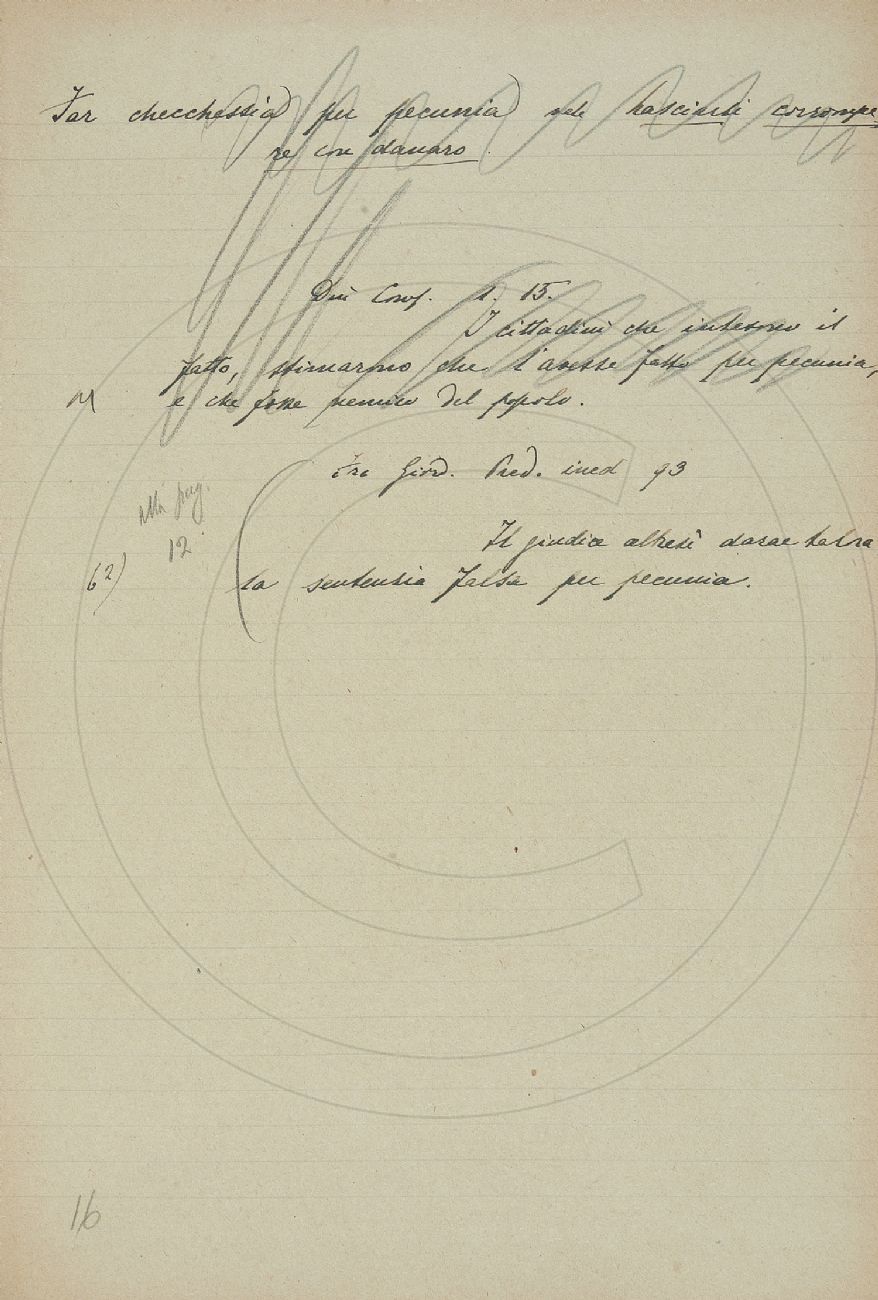 Far checchessia) per pecunia) vale lasciarsi corrompe-
re con danaro.
Din Comp. 1. 15.
I cittadini che intesono il
fatto, stimarono che l'avesse fatto per pecunia,
M e che fosse nemico del popolo.
Fra Giord. Pred. ined 93
alla pag.
12
Il giudice altresì darae talora
62) la sentenzia falsa per pecunia.
16